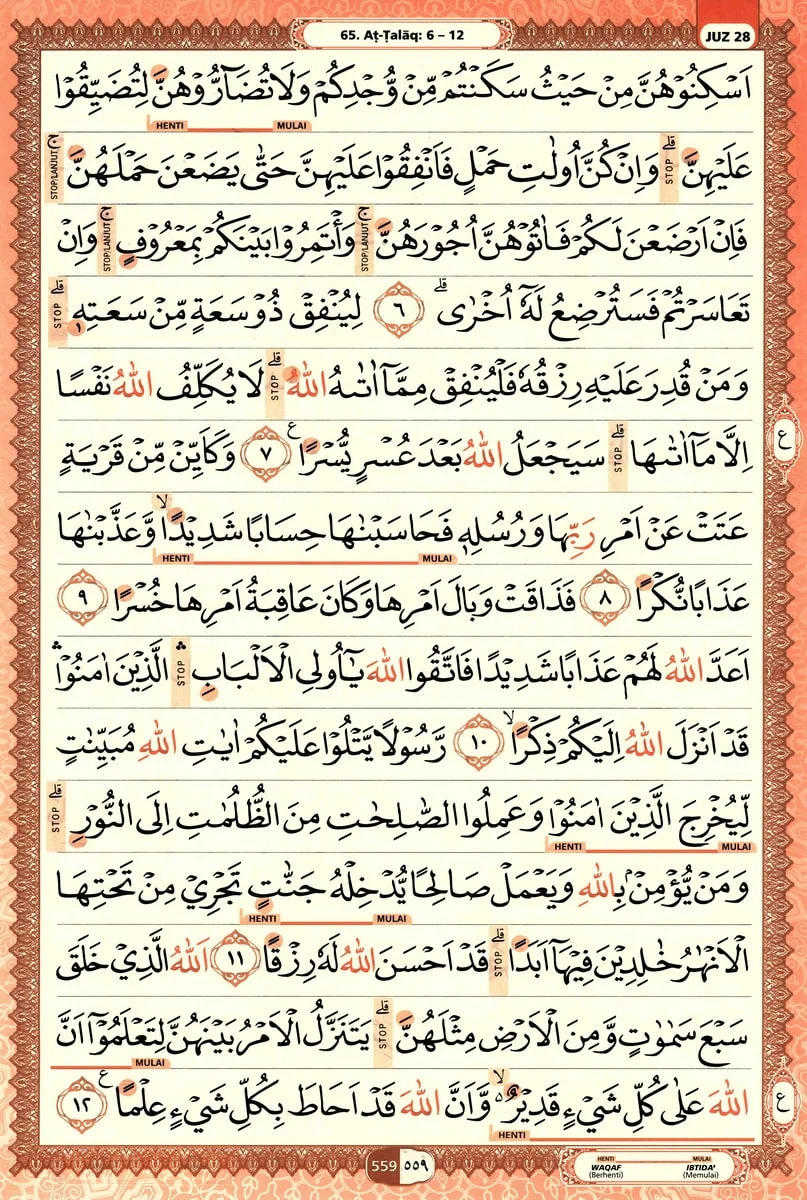 65. Aṭ-Ṭalāq: 6 – 12
JUZ 28
اَسْكِنُوْهُنَّ مِنْ حَيْثُ سَكَنْتُمْ مِّنْ وُّجْدِكُمْ وَلَا تُضَاۤرُّوْهُنَّ لِتُضَيِّقُوْا
HENTI MULAI
عَلَيْهِنَّ ۗ STOP وَاِنْ كُنَّ اُولٰتِ حَمْلٍ فَاَنْفِقُوْا عَلَيْهِنَّ حَتّٰى يَضَعْنَ حَمْلَهُنَّ ۚ STOP/LANJUT
فَاِنْ اَرْضَعْنَ لَكُمْ فَاٰتُوْهُنَّ اُجُوْرَهُنَّ ۚ STOP/LANJUT وَأْتَمِرُوْا بَيْنَكُمْ بِمَعْرُوْفٍ ۚ STOP/LANJUT وَاِنْ
تَعَاسَرْتُمْ فَسَتُرْضِعُ لَهٗٓ اُخْرٰى ۗ ٦ لِيُنْفِقْ ذُوْ سَعَةٍ مِّنْ سَعَتِهٖ ۗ STOP
وَمَنْ قُدِرَ عَلَيْهِ رِزْقُهٗ فَلْيُنْفِقْ مِمَّآ اٰتٰىهُ اللّٰهُ ۗ STOP لَا يُكَلِّفُ اللّٰهُ نَفْسًا
اِلَّا مَآ اٰتٰىهَا ۗ STOP سَيَجْعَلُ اللّٰهُ بَعْدَ عُسْرٍ يُّسْرًا ࣖ ٧ وَكَاَيِّنْ مِّنْ قَرْيَةٍ
ع
عَتَتْ عَنْ اَمْرِ رَبِّهَا وَرُسُلِهٖ فَحَاسَبْنٰهَا حِسَابًا شَدِيْدًاۙ وَّعَذَّبْنٰهَا
HENTI MULAI
عَذَابًا نُّكْرًا ٨ فَذَاقَتْ وَبَالَ اَمْرِهَا وَكَانَ عَاقِبَةُ اَمْرِهَا خُسْرًا ٩
اَعَدَّ اللّٰهُ لَهُمْ عَذَابًا شَدِيْدًا فَاتَّقُوا اللّٰهَ يٰٓاُولِى الْاَلْبَابِۛ STOP الَّذِيْنَ اٰمَنُوْاۛ
قَدْ اَنْزَلَ اللّٰهُ اِلَيْكُمْ ذِكْرًاۙ ١٠ رَّسُوْلًا يَّتْلُوْا عَلَيْكُمْ اٰيٰتِ اللّٰهِ مُبَيِّنٰتٍ
لِّيُخْرِجَ الَّذِيْنَ اٰمَنُوْا وَعَمِلُوا الصّٰلِحٰتِ مِنَ الظُّلُمٰتِ اِلَى النُّوْرِ ۗ STOP
HENTI MULAI
وَمَنْ يُّؤْمِنْۢ بِاللّٰهِ وَيَعْمَلْ صَالِحًا يُّدْخِلْهُ جَنّٰتٍ تَجْرِيْ مِنْ تَحْتِهَا
HENTI MULAI
الْاَنْهٰرُ خٰلِدِيْنَ فِيْهَآ اَبَدًا ۗ STOP قَدْ اَحْسَنَ اللّٰهُ لَهٗ رِزْقًا ١١ اَللّٰهُ الَّذِيْ خَلَقَ
سَبْعَ سَمٰوٰتٍ وَّمِنَ الْاَرْضِ مِثْلَهُنَّ ۗ STOP يَتَنَزَّلُ الْاَمْرُ بَيْنَهُنَّ لِتَعْلَمُوْٓا اَنَّ
MULAI
اللّٰهَ عَلٰى كُلِّ شَيْءٍ قَدِيْرٌ ەۙ وَّاَنَّ اللّٰهَ قَدْ اَحَاطَ بِكُلِّ شَيْءٍ عِلْمًا ࣖ ١٢
ع
HENTI
559 ٥٥٩
HENTI MULAI
WAQAF IBTIDA'
(Berhenti) (Memulai)